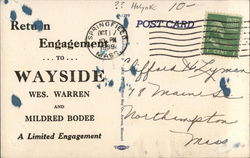 ?? Holyoke 10-
Return
Engagement
... TO ...
WAYSIDE
WES. WARREN
AND
MILDRED BODEE
A Limited Engagement
SPRINGFIELD
OCT
MASS.
POST CARD
Clifford H. Lyman
Main St
Northampton
Mass